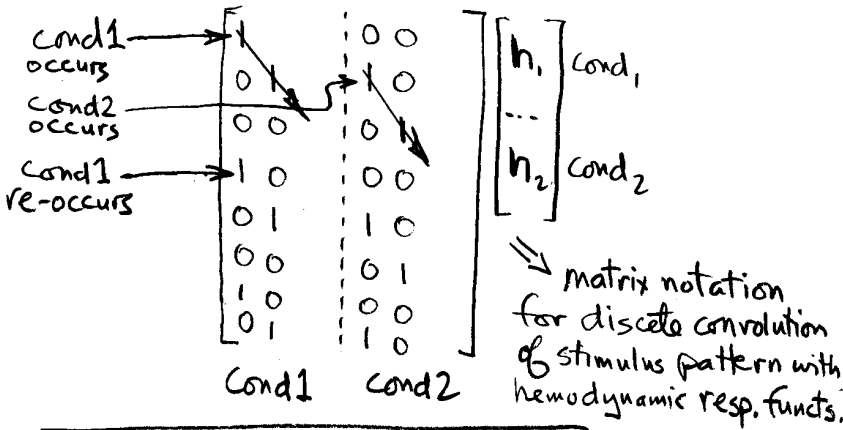 cond1
occurs
cond2
occurs
cond1
re-occurs
1 0 0
0 1 1 0
0 0 0 1
1 0 0 0
0 1 1 0
0 0 0 1
1 0 0 0
0 1 1 0
cond1 cond2
h1 cond1
...
h2 cond2
⇒ matrix notation
for discete convolution
of stimulus pattern with
hemodynamic resp. functs.